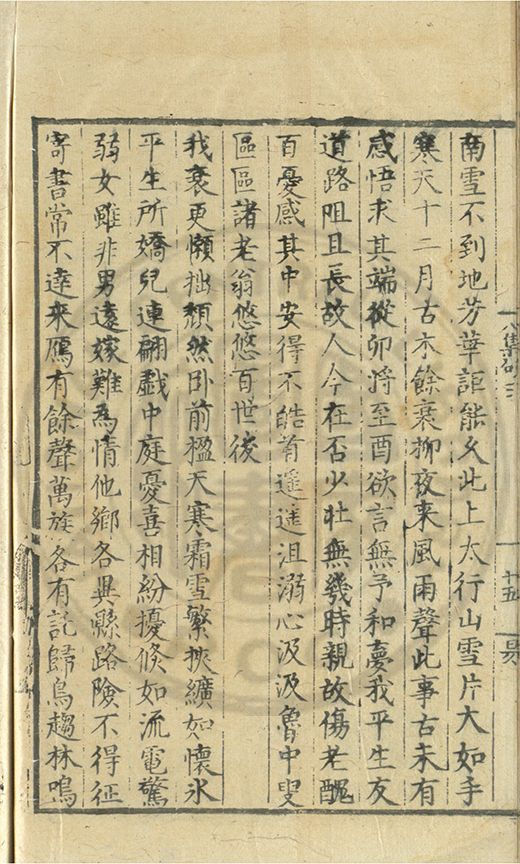 十五
南雪不到地芳華詎能久此上太行山雪片大如手
寒天十二月古木餘衰柳夜来風雨聲此事古未有
感悟求其端從卯將至酉欲言無予和憂我平生友
道路阻且長故人今在否少壮無幾時親故傷老醜
百憂感其中安得不皓首遥遥沮溺心汲汲魯中叟
區區諸老翁悠悠百世後
我衰更懶拙頽然卧前楹天寒霜雪繁挾纊如懷氷
平生所嬌兒連翩戯中庭憂喜相紛擾倏如流電驚
弱女雖非男遠嫁難為情他鄉各異縣路險不得征
寄書常不達来鴈有餘聲萬族各有託歸鳥趨林鳴